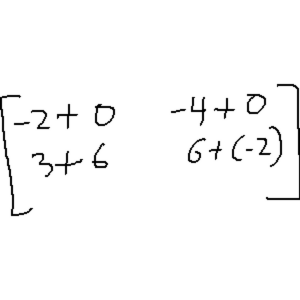 [-2+0 -4+0
3+6 6+(-2)]